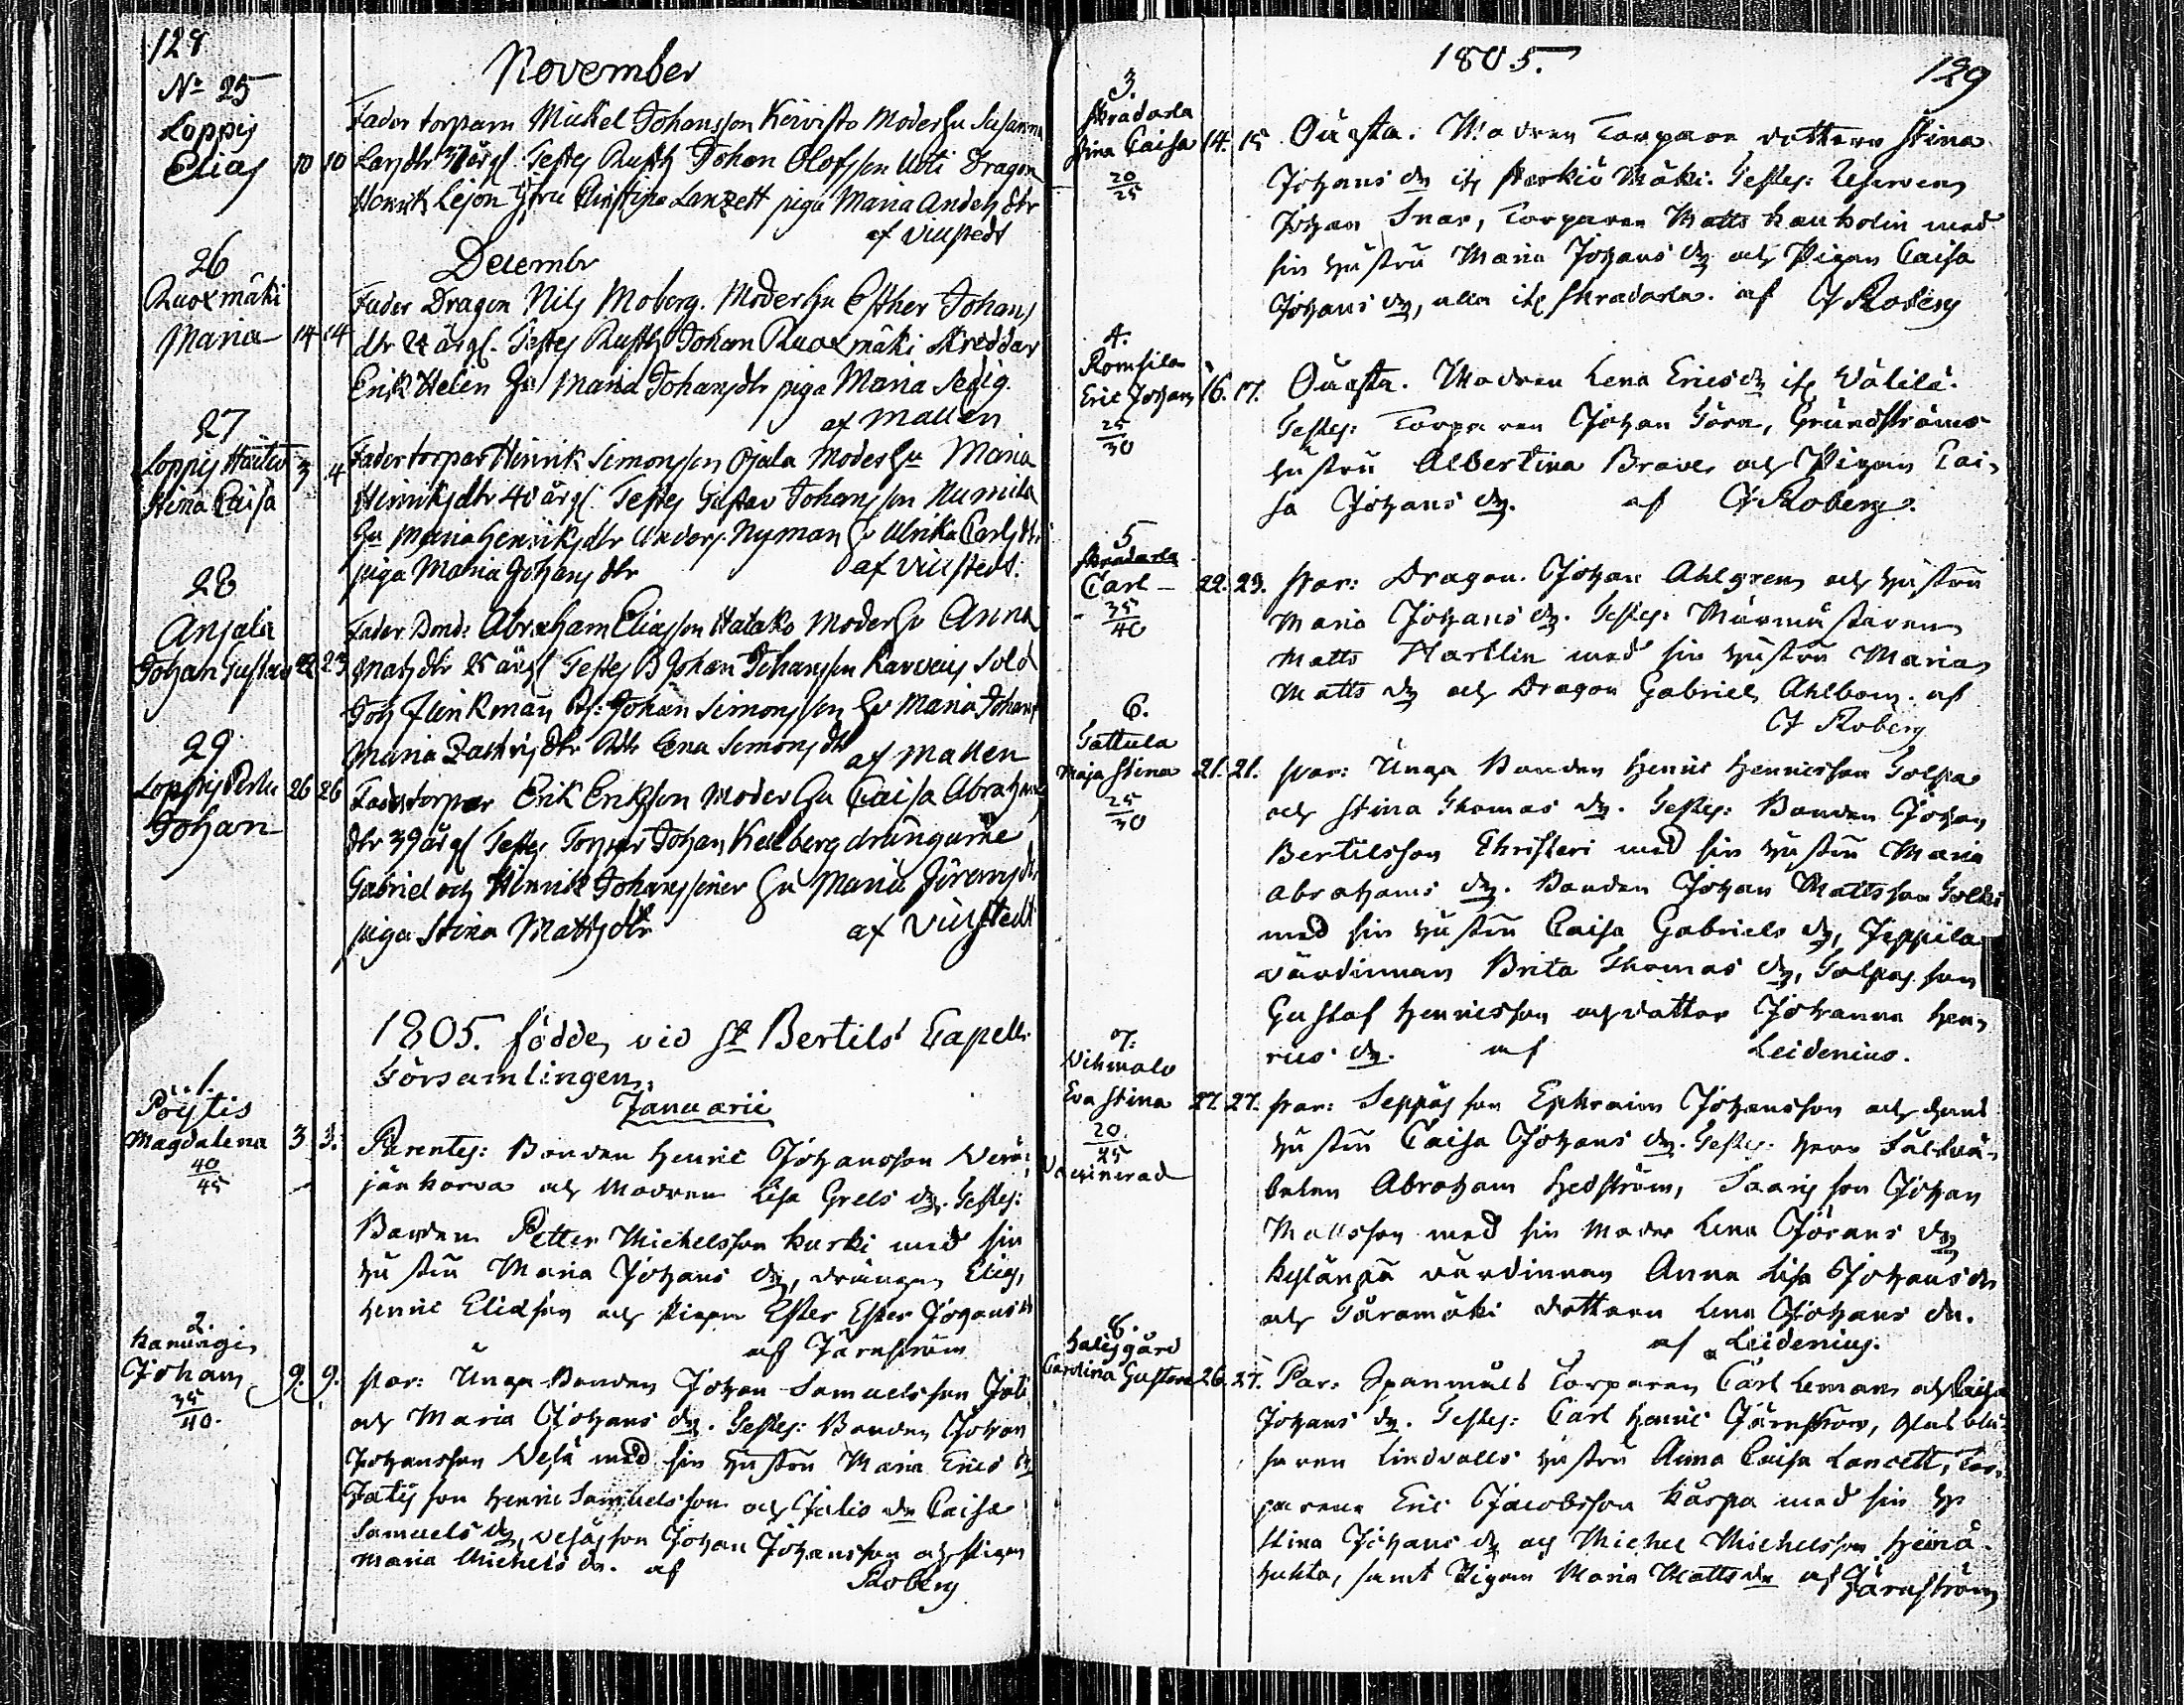 128
November
No 25
Loppis
Elias 10 10
Fader torparn Mickel Johansson Kervisto Moder Hu Susanna
Larsdtr 37 årg. Testes Rusth Johan Olofsson Uoti Dragon
Henrik Lejon Christina Lanzett piga Maria Anders dtr
af Villstedt
Decembr
26
Ruoxmäki
Maria 14 14
Fader Dragon Nils Moberg. Moder Hu Esther Johans
dtr 24 årg. Testes Rusth Johan Ruoxmäki Skreddar
Erik Helen Hu Maria Johansdtr piga Maria Selig.
af Mallen
27
Loppis
Stina Caisa 3 4
Fader torpar Henrik Simonsson Ojala Moder Hu Maria
Henriksdtr 40 årg. Testes Gustav Johansson Numila
Hu Maria Henriksdtr Anders Nyman Hu Ulrika Carls dtr
piga Maria Johans dtr af Villstedt.
28
Anjala
Johan Gustav 22 23
Fader Bond: Abraham Eliasson Hatako Moder Hu Anna
Matsdtr 25 årg Testes B Johan Johansson Sold
Joh Flinkman Johan Simonsson Hu Maria Johans
Maria Zachrisdtr Lena Simons dtr af Mallen
29
Loppis
Johan 26 26
Fader torpar Erik Eriksson Moder Hu Caisa Abrahams
dtr 39 årg Testes Torpar Johan Kellberg drängarne
Gabriel och Henrik Johanssoner Hu Maria Jörans dtr
piga Stina Mattsdtr af Villstedt
1805. födde, vid St Bertils Capell
Församlingen.
Januarii
1.
Pöytis
Magdalena 3 3.
40
45
Parentes: Bonden Henric Johansson
och Modren Lisa Grels dr. Testes:
Bonden Petter Michelsson Kurki med sin
hustru Maria Johans dr, drängen Elias,
Henric Eliasson och Pigan Ester Ester Johans dr
af Järnström
2.
Johan 9. 9.
35
40.
Par: Unga Bonden Johan Samuelsson
och Maria Johans dr. Testes: Bonden Johan
Johansson Vesa med sin hustru Maria Erics dr
son Henric Samuelsson och dr Caisa
Samuels dr, son Johan Johansson och Pigan
Maria Michels dr. af Skoberg
1805.
129
3.
Skradarla
Stina Caisa 14. 15
20
25
Oäkta. Modren Torpare dottern Stina
Johans dr ifr Mäki. Testes:
Johan Snar, Torparen Matts Kauholin med
sin hustru Maria Johans dr och Pigan Caisa
Johans dr, alla ifr Skradarla. af Skoberg
4.
Romsila
Eric Johan 16. 17.
25
30
Oäkta. Modren Lena Erics dr ifr Välilä.
Testes: Torparen Johan Göra, Grundströms
hustru Albertina Brave och Pigan Cai-
sa Johans dr. af Skoberg.
5
Skradarla
Carl 22. 23.
35
40
Par: Dragon Johan Ahlgren och hustru
Maria Johans dr. Testes: Murmästaren
Matts Hartlin med sin hustru Maria
Matts dr och Dragon Gabriel Ahlbom. af
Skoberg
6.
Tattula
Maja Stina 21. 21.
25
30
Par: Unga Bonden Henric Henricsson Tolpa
och Stina Thomas dr. Testes: Bonden Johan
Bertilsson Christeri med sin hustru Maria
Abrahams dr. Bonden Johan Mattsson
med sin hustru Caisa Gabriels dr, Jeppila
värdinnan Brita Thomas dr, son
Gustaf Henricsson och dotter Johanna Hen-
rics dr. af Leidenius.
7.
Vihmalo
Eva Stina 27. 27.
20
25
Vaccinerad
Par: Seppäs son Ephraim Johansson och hans
hustru Caisa Johans dr. Testes: Herr Fältvä-
belen Abraham Hedström, Saaris son Johan
Mattsson med sin Moder Lena Görans dr
värdinnan Anna Lisa Johans dr
och dottren Lena Johans dr.
af Leidenius.
8.
Halisgård
Carolina Gustava 26. 27.
Par: Spanmåls Torparen Carl Leman och Caisa
Johans dr. Testes: Carl Henric Järnström, Glasblå-
saren Lindvalls hustru Anna Caisa Lancett, Tor-
paren Eric Jacobsson Kaspa med sin h
Stina Johans dr och Michel Michelsson Heinä-
huhta, samt Pigan Maria Matts dr af Järnström